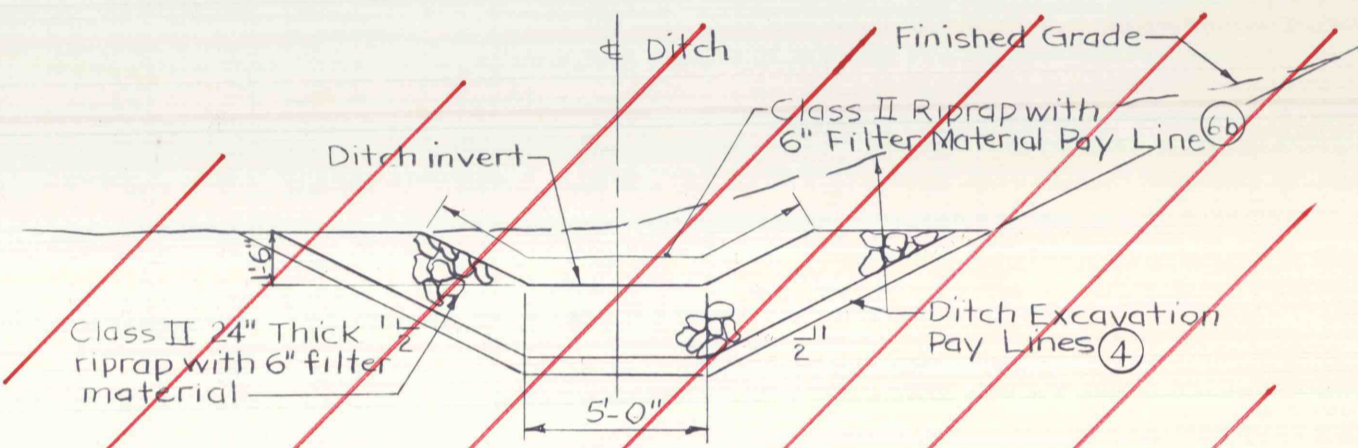 ℄ Ditch
Finished Grade
Class II Riprap with
6" Filter Material Pay Line 6b
Ditch invert
1'-6"
Class II 24" Thick
riprap with 6" filter
material
1
2
1
2
Ditch Excavation
Pay Lines 4
5'-0"